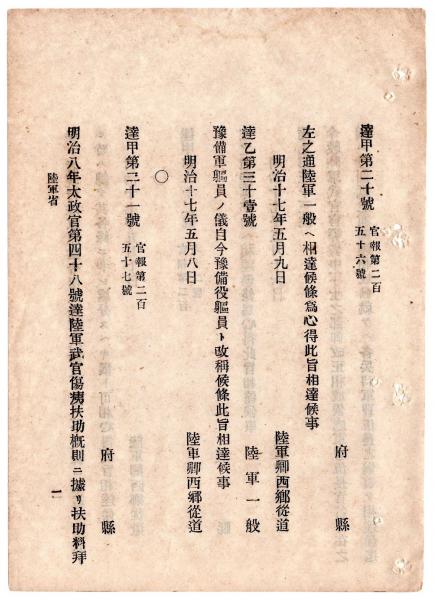 達甲第二十號
官報第二百
五十六號
府縣
左之通陸軍一般ヘ相達候條爲心得此旨相達候事
明治十七年五月九日
陸軍卿西鄕從道
達乙第三十壹號
陸軍一般
豫備軍軀員ノ儀自今豫備役軀員ト改稱候條此旨相達候事
明治十七年五月八日
陸軍卿西鄕從道
〇
達甲第二十一號
官報第二百
五十七號
府縣
明治八年太政官第四十八號達陸軍武官傷痍扶助槪則ニ據リ扶助料拜
陸軍省
一